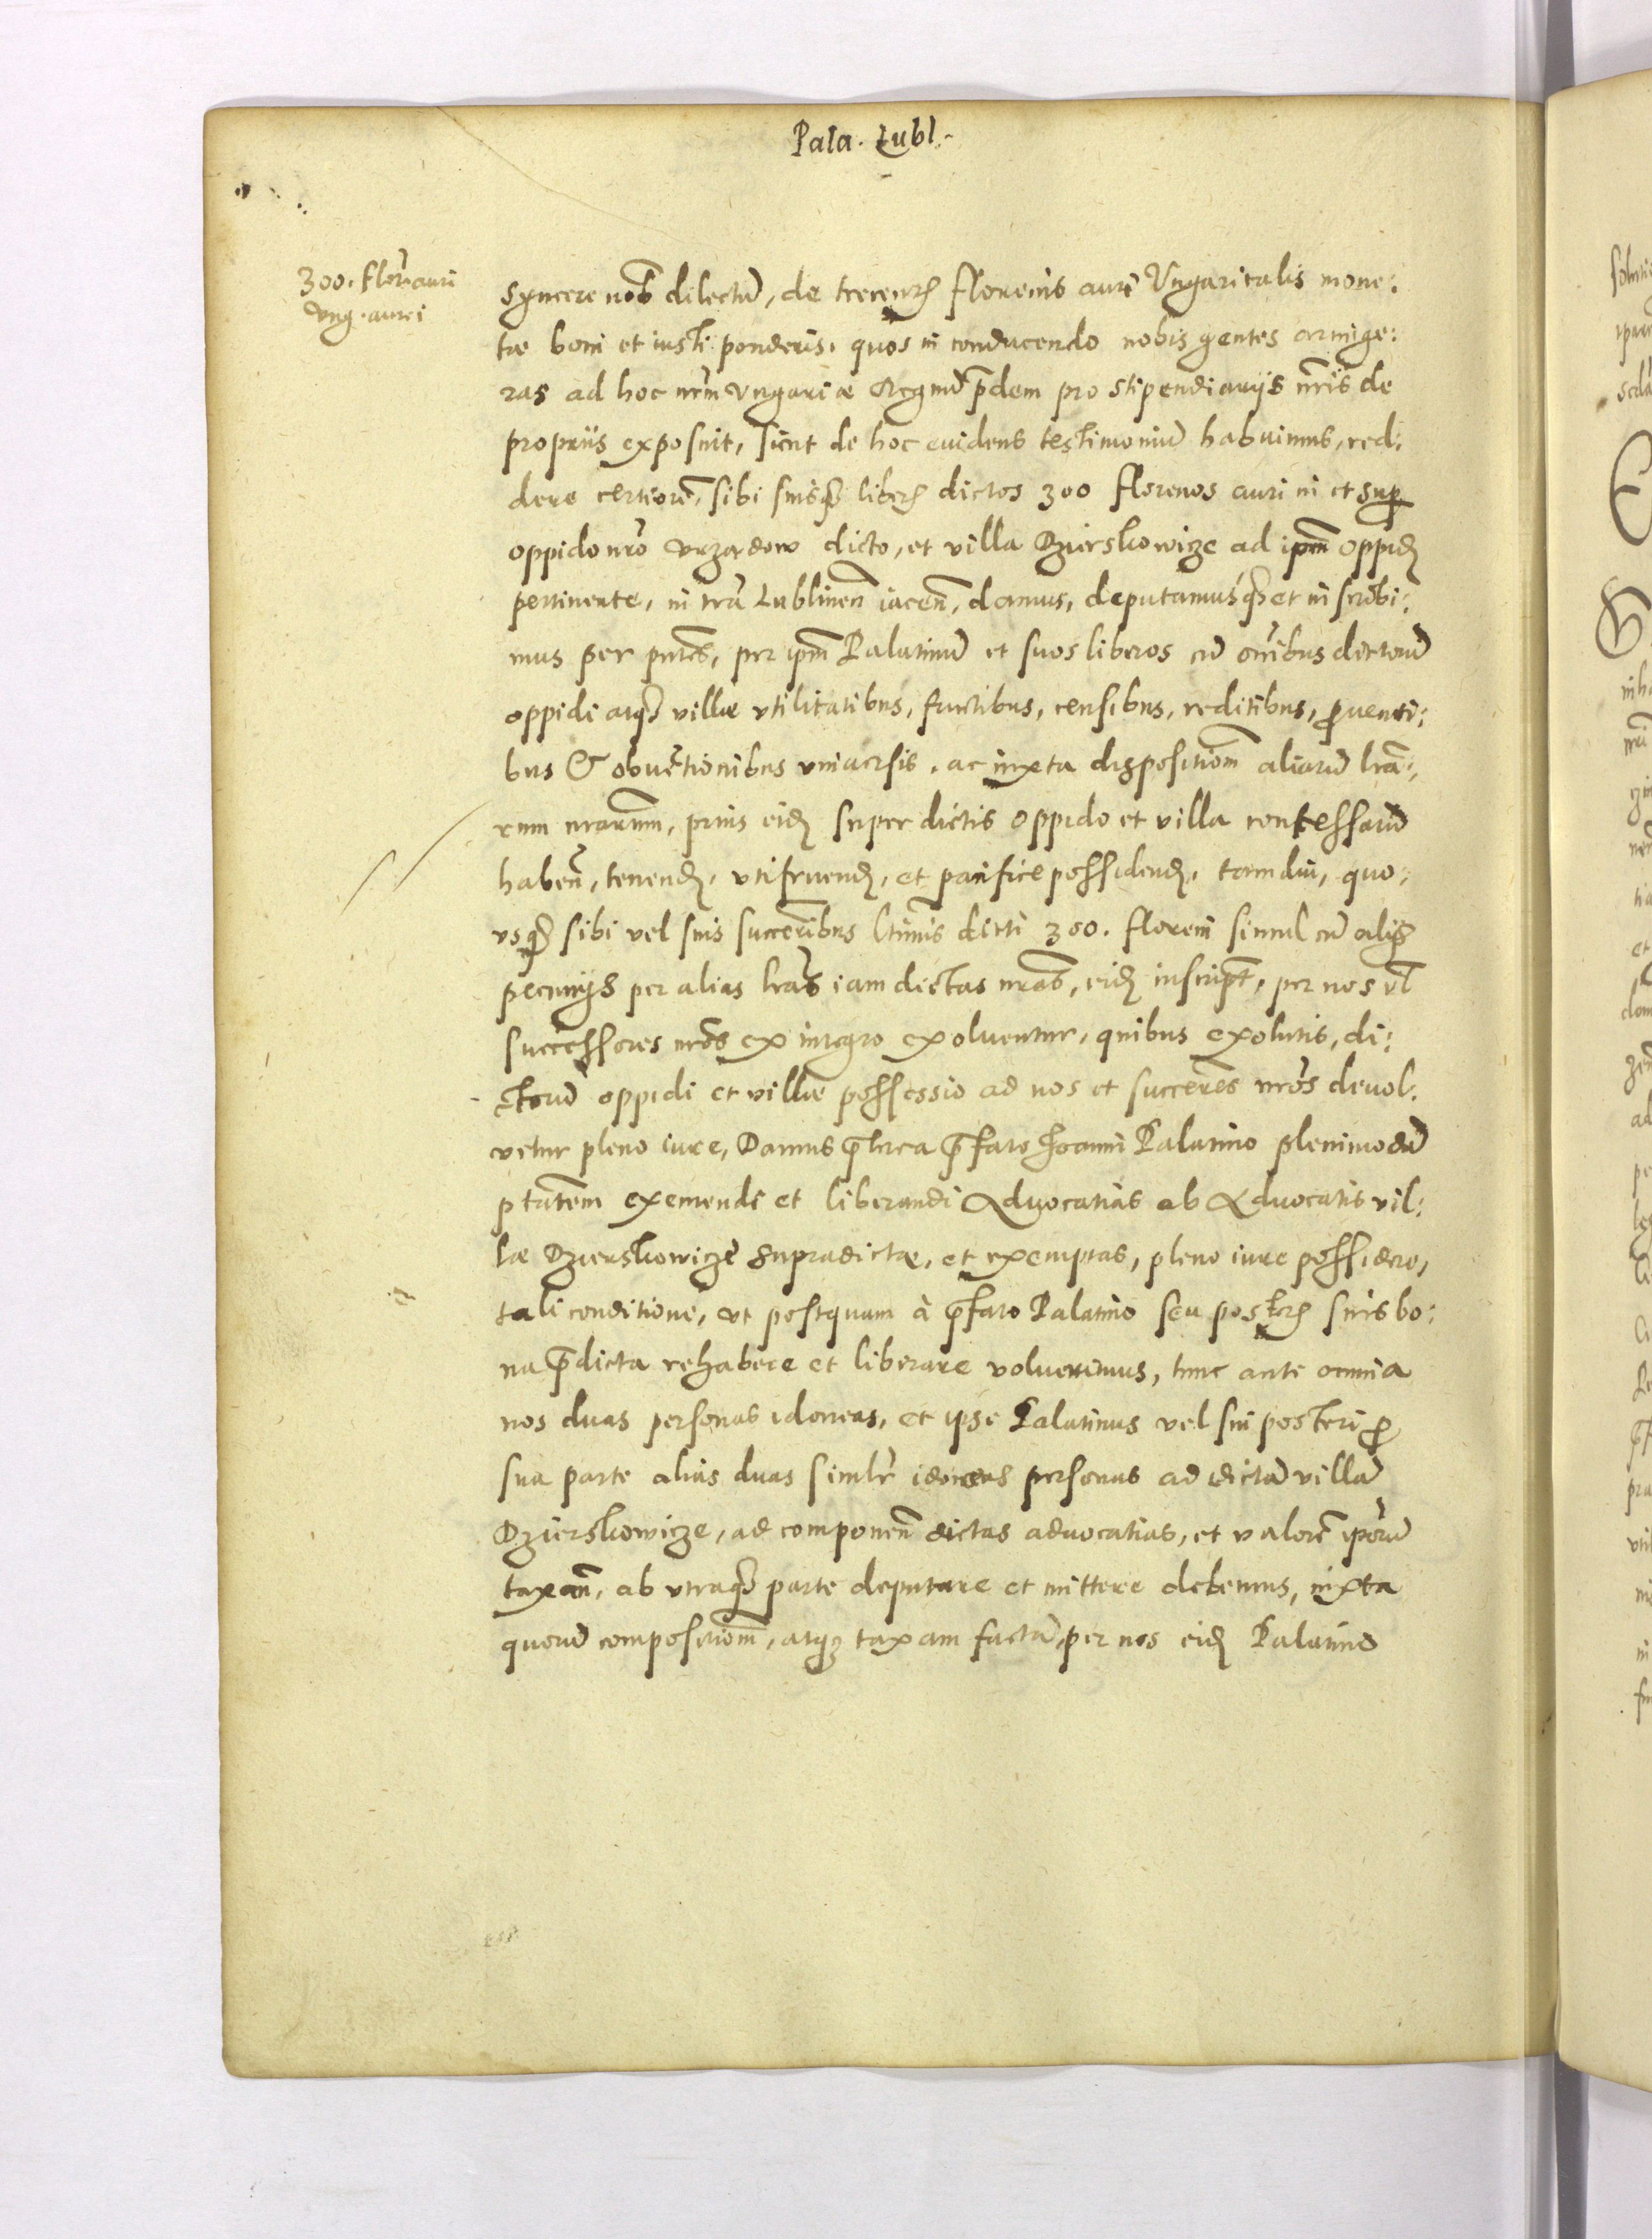 Pala. Lubl.
300. flor. auri
Vng. aurei
Syncere nob dilectū, de trecentis florenis auri Vngaricalis mone:
tæ boni et iusti ponderis, quos in conducendo nobis gentes armige:
ras ad hoc nrm̄ Vngariæ Regnū p̄dem pro stipendiarijs nris̄ de
proprijs exposuit, sicut de hoc euidens testimoniū habuimus, red:
dere certiorē, sibi suisq; liberis dictos 300 florenos auri in et sup
oppido nr̄o Vrzędow dicto, et villa Dzierskowicze ad ipm̄ oppid
pertinente, in tr̄a Lublinen̄ iacen̄, damus, deputamusq; et in scribi:
mus per pn̄tes, per ipm̄ Palatinū et suos liberos cū om̄ibus dictorū
oppidi atq; villæ vtilitatibus, fructibus, censibus, reditibus, prouenti:
bus & obuentionibus vniuersis, ac iuxta dispositiom̄ aliarū lrā:
rum nrarum̄, prius eid super dictis oppido et villa confessarū
haben̄, tenend, vtifruend, et pacifice possidend, tamdiu, quo:
vsq; sibi vel suis succerībus ltimīs dicti 300. floreni simul cū alijs
pecunijs per alias lrās iam dictas nrās, eid inscript, per nos vl
successores nros̄ ex integro exoluentur, quibus exolutis, di:
ctorū oppidi et villæ possessio ad nos et succeres̄ nros̄ deuol:
vetur pleno iure, Damus p̄terea p̄fato Joanni Palatino plenimodā
ptatem̄ exemendi et liberandi Aduocatias ab Aduocatis vil:
læ Dzierskowicze supradictæ, et exemptas, pleno iure possidere,
tali conditione, vt postquam à p̄fato Palatino seu posteris suis bo:
na p̄dicta rehabere et liberare voluerimus, tunc ante omnia
nos duas personas idoneas, et ipse Palatinus vel sui posteri pro
sua parte alias duas simlr̄ idoneas personas ad dictā villā
Dzierskowicze, ad componen̄ dictas aduocatias, et valorē iporū
taxan̄, ab vtraq; parte deputare et mittere debemus, iuxta
quorū compositiom̄, atq; taxam factā, per nos eid Palatino